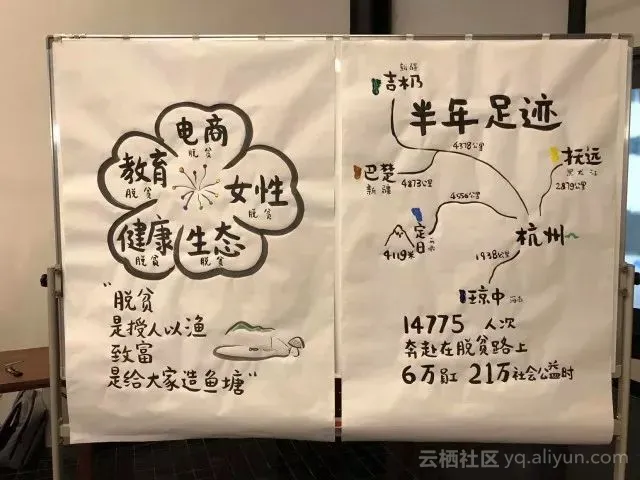 电商
脱贫
教育
脱贫
女性
脱贫
健康
脱贫
生态
脱贫
"脱贫
是授人以渔
致富
是给大家造鱼塘"
半年足迹
新疆
吉木乃
4378公里
巴楚
新疆
4873公里
抚远
黑龙江
2879公里
4556公里
定日
4119米
杭州
1938公里
琼中
海南
14775 人次
奔赴在脱贫路上
6万员工 21万社会公益时
云栖社区 yq.aliyun.com